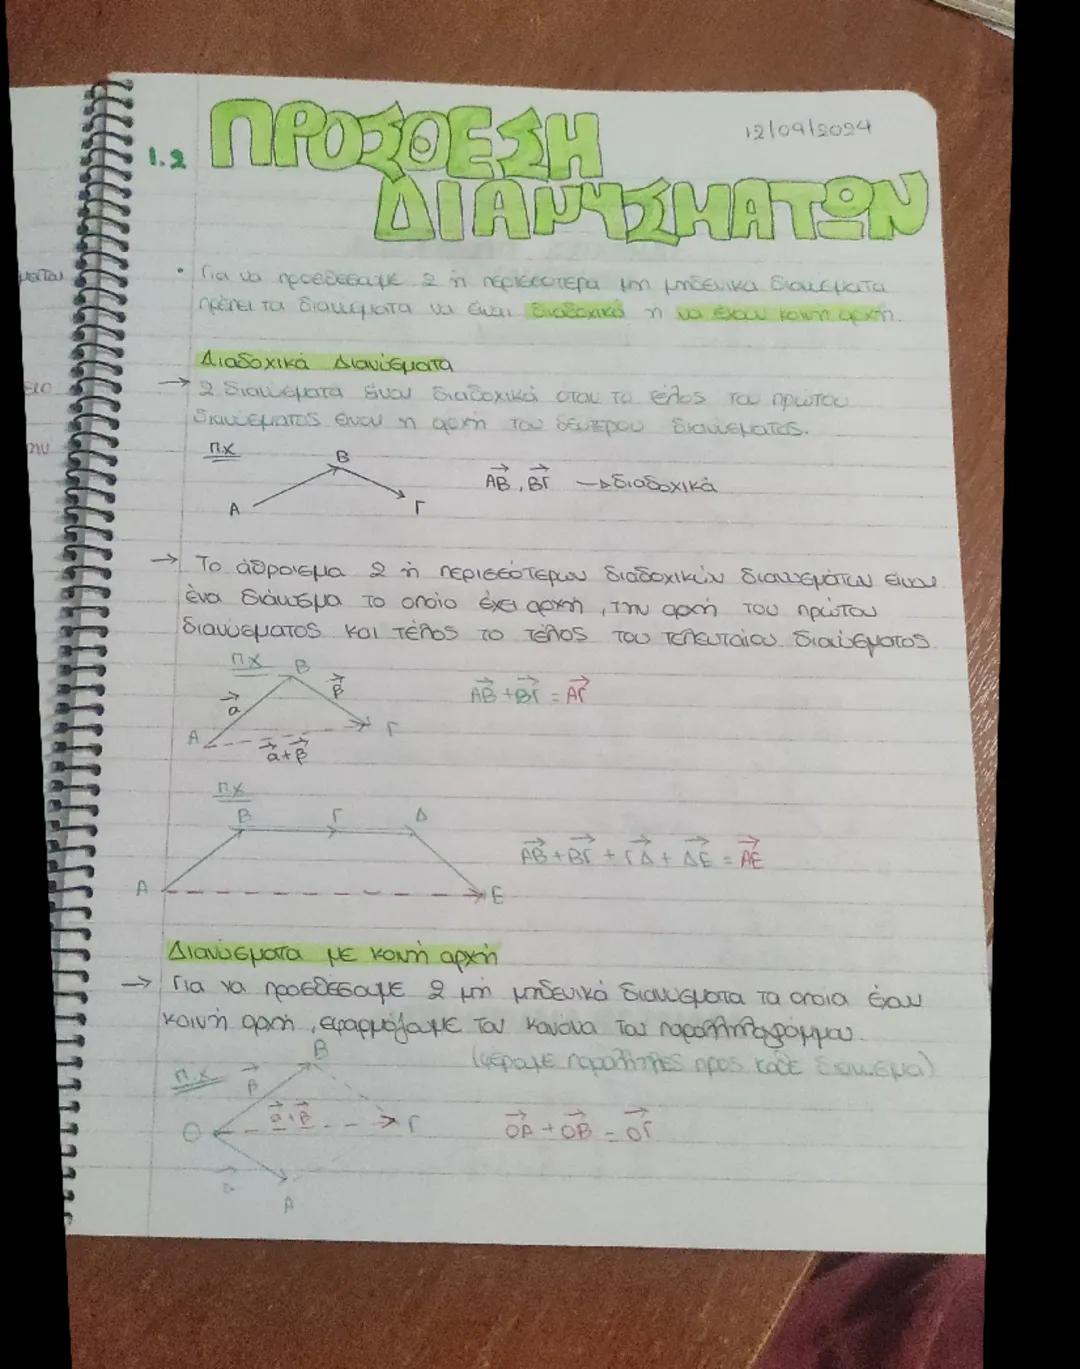 12/09/2024
1.2 ΠΡΟΣΘΕΣΗ
ΔΙΑΝΥΣΜΑΤΩΝ
• Για να προσθέσουμε 2 ή περισσότερα μη μηδενικά διανύσματα
πρέπει τα διανύσματα να είναι διαδοχικά ή να έχουν κοινή αρχή.
Διαδοχικά Διανύσματα
→ 2 διανύσματα είναι διαδοχικά όταν το τέλος του πρώτου
διανύσματος είναι η αρχή του δεύτερου διανύσματος.
π.χ
B
A
Γ
AB, BΓ → διαδοχικά
→ Το άθροισμα 2 ή περισσότερων διαδοχικών διανυσμάτων είναι
ένα διάνυσμα το οποίο έχει αρχή, την αρχή του πρώτου
διανύσματος και τέλος το τέλος του τελευταίου διανύσματος
π.χ B
a β
A Γ
a+β
AB + BΓ = AΓ
π.χ
B Γ Δ
A E
AB + BΓ + ΓΔ + ΔE = AE
Διανύσματα με κοινή αρχή
→ Για να προσθέσουμε 2 μη μηδενικά διανύσματα τα οποία έχουν
κοινή αρχή, εφαρμόζουμε τον κανόνα του παραλληλογράμμου.
(φέρουμε παράλληλες προς κάθε διάνυσμα)
π.χ β B
a+β
O Γ
a A
OA + OB = OΓ